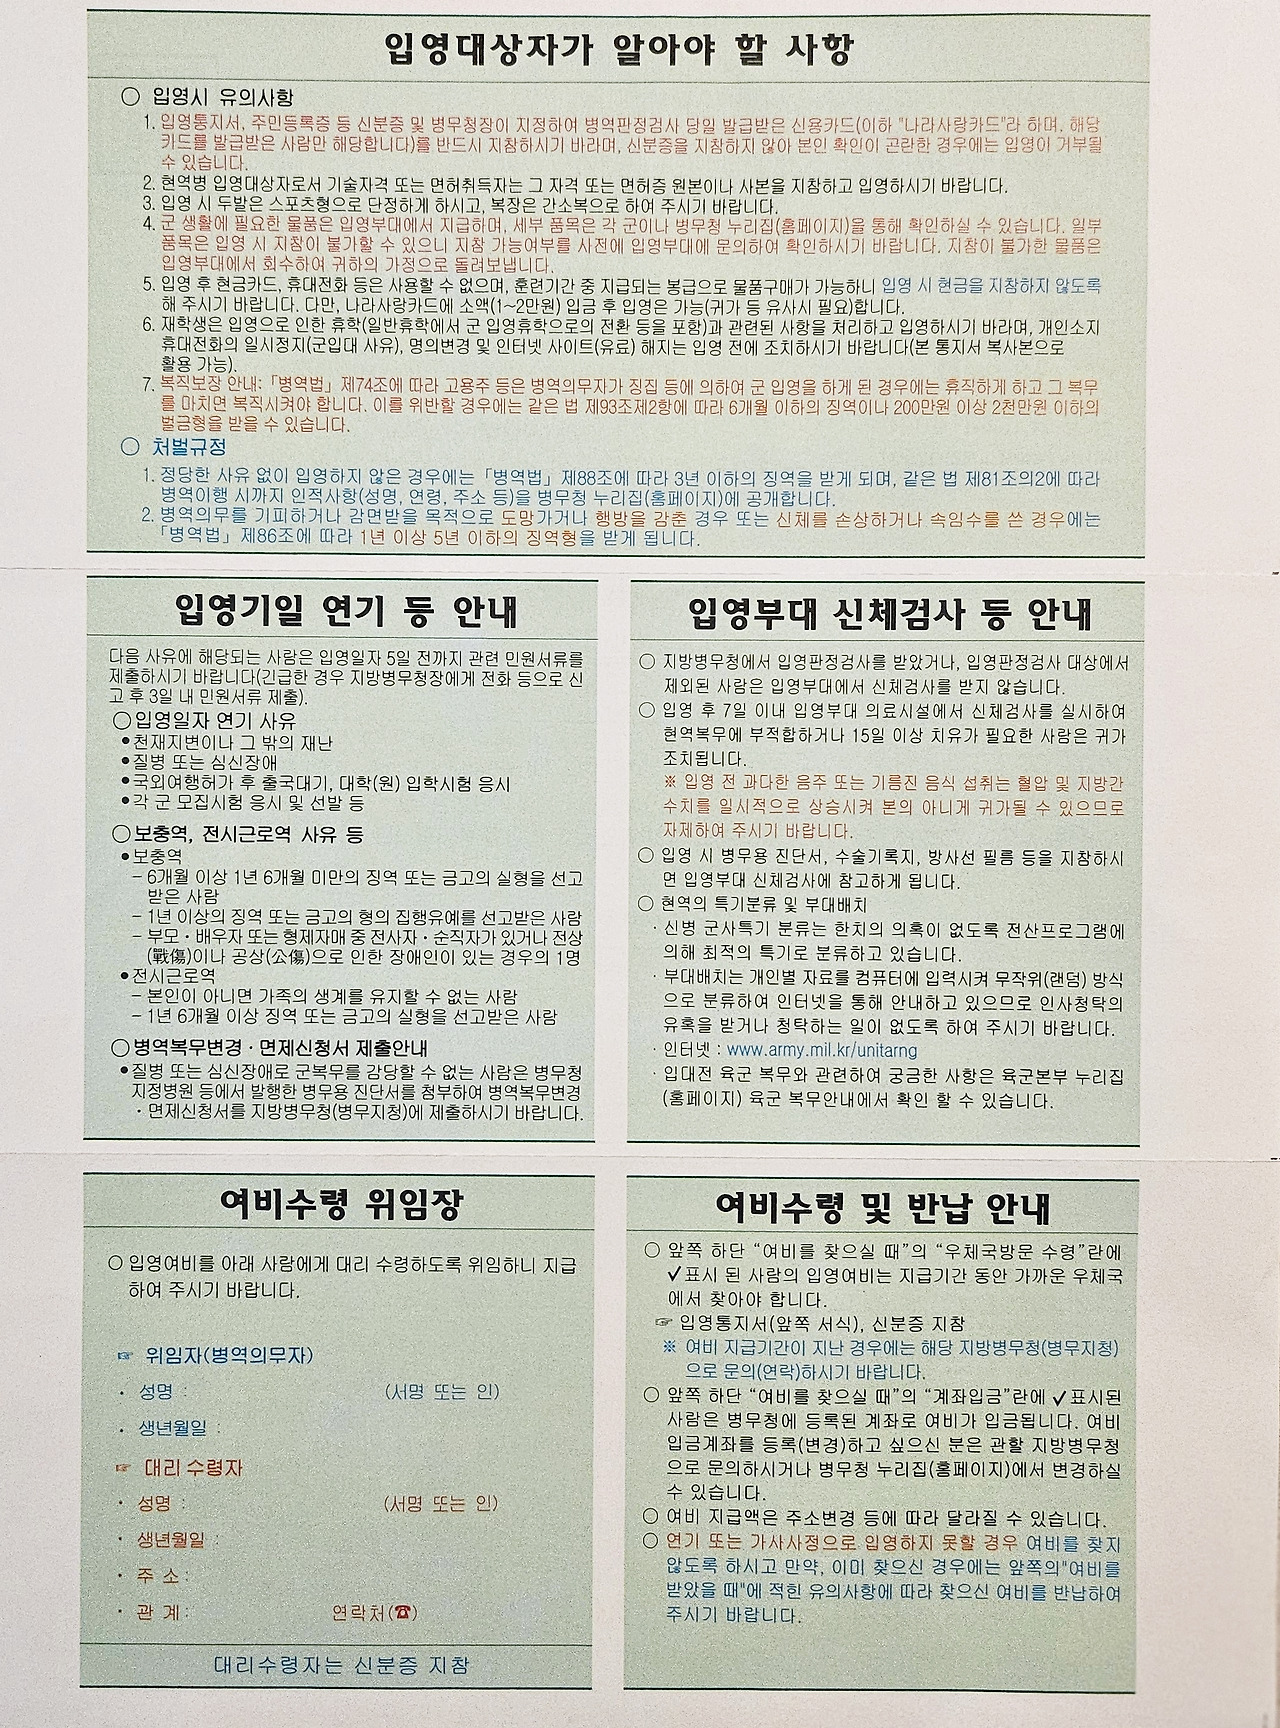 입영대상자가 알아야 할 사항
○ 입영시 유의사항
1. 입영통지서, 주민등록증 등 신분증 및 병무청장이 지정하여 병역판정검사 당일 발급받은 신용카드(이하 "나라사랑카드"라 하며, 해당
카드를 발급받은 사람만 해당합니다)를 반드시 지참하시기 바라며, 신분증을 지참하지 않아 본인 확인이 곤란한 경우에는 입영이 거부될
수 있습니다.
2. 현역병 입영대상자로서 기술자격 또는 면허취득자는 그 자격 또는 면허증 원본이나 사본을 지참하고 입영하시기 바랍니다.
3. 입영 시 두발은 스포츠형으로 단정하게 하시고, 복장은 간소복으로 하여 주시기 바랍니다.
4. 군 생활에 필요한 물품은 입영부대에서 지급하며, 세부 품목은 각 군이나 병무청 누리집(홈페이지)을 통해 확인하실 수 있습니다. 일부
품목은 입영 시 지참이 불가할 수 있으니 지참 가능여부를 사전에 입영부대에 문의하여 확인하시기 바랍니다. 지참이 불가한 물품은
입영부대에서 회수하여 귀하의 가정으로 돌려보냅니다.
5. 입영 후 현금카드, 휴대전화 등은 사용할 수 없으며, 훈련기간 중 지급되는 봉급으로 물품구매가 가능하니 입영 시 현금을 지참하지 않도록
해 주시기 바랍니다. 다만, 나라사랑카드에 소액(1~2만원) 입금 후 입영은 가능(귀가 등 유사시 필요)합니다.
6. 재학생은 입영으로 인한 휴학(일반휴학에서 군 입영휴학으로의 전환 등을 포함)과 관련된 사항을 처리하고 입영하시기 바라며, 개인소지
휴대전화의 일시정지(군입대 사유), 명의변경 및 인터넷 사이트(유료) 해지는 입영 전에 조치하시기 바랍니다(본 통지서 복사본으로
활용 가능).
7. 복직보장 안내: 「병역법」 제74조에 따라 고용주 등은 병역의무자가 징집 등에 의하여 군 입영을 하게 된 경우에는 휴직하게 하고 그 복무
를 마치면 복직시켜야 합니다. 이를 위반할 경우에는 같은 법 제93조제2항에 따라 6개월 이하의 징역이나 200만원 이상 2천만원 이하의
벌금형을 받을 수 있습니다.
○ 처벌규정
1. 정당한 사유 없이 입영하지 않은 경우에는 「병역법」 제88조에 따라 3년 이하의 징역을 받게 되며, 같은 법 제81조의2에 따라
병역이행 시까지 인적사항(성명, 연령, 주소 등)을 병무청 누리집(홈페이지)에 공개합니다.
2. 병역의무를 기피하거나 감면받을 목적으로 도망가거나 행방을 감춘 경우 또는 신체를 손상하거나 속임수를 쓴 경우에는
「병역법」 제86조에 따라 1년 이상 5년 이하의 징역형을 받게 됩니다.
입영기일 연기 등 안내
다음 사유에 해당되는 사람은 입영일자 5일 전까지 관련 민원서류를
제출하시기 바랍니다(긴급한 경우 지방병무청장에게 전화 등으로 신
고 후 3일 내 민원서류 제출).
○ 입영일자 연기 사유
● 천재지변이나 그 밖의 재난
● 질병 또는 심신장애
● 국외여행허가 후 출국대기, 대학(원) 입학시험 응시
● 각 군 모집시험 응시 및 선발 등
○ 보충역, 전시근로역 사유 등
● 보충역
- 6개월 이상 1년 6개월 미만의 징역 또는 금고의 실형을 선고
받은 사람
- 1년 이상의 징역 또는 금고의 형의 집행유예를 선고받은 사람
- 부모·배우자 또는 형제자매 중 전사자·순직자가 있거나 전상
(戰傷)이나 공상(公傷)으로 인한 장애인이 있는 경우의 1명
● 전시근로역
- 본인이 아니면 가족의 생계를 유지할 수 없는 사람
- 1년 6개월 이상 징역 또는 금고의 실형을 선고받은 사람
○ 병역복무변경·면제신청서 제출안내
● 질병 또는 심신장애로 군복무를 감당할 수 없는 사람은 병무청
지정병원 등에서 발행한 병무용 진단서를 첨부하여 병역복무변경
·면제신청서를 지방병무청(병무지청)에 제출하시기 바랍니다.
입영부대 신체검사 등 안내
○ 지방병무청에서 입영판정검사를 받았거나, 입영판정검사 대상에서
제외된 사람은 입영부대에서 신체검사를 받지 않습니다.
○ 입영 후 7일 이내 입영부대 의료시설에서 신체검사를 실시하여
현역복무에 부적합하거나 15일 이상 치유가 필요한 사람은 귀가
조치됩니다.
※ 입영 전 과다한 음주 또는 기름진 음식 섭취는 혈압 및 지방간
수치를 일시적으로 상승시켜 본의 아니게 귀가될 수 있으므로
자제하여 주시기 바랍니다.
○ 입영 시 병무용 진단서, 수술기록지, 방사선 필름 등을 지참하시
면 입영부대 신체검사에 참고하게 됩니다.
○ 현역의 특기분류 및 부대배치
· 신병 군사특기 분류는 한치의 의혹이 없도록 전산프로그램에
의해 최적의 특기로 분류하고 있습니다.
· 부대배치는 개인별 자료를 컴퓨터에 입력시켜 무작위(랜덤) 방식
으로 분류하여 인터넷을 통해 안내하고 있으므로 인사청탁의
유혹을 받거나 청탁하는 일이 없도록 하여 주시기 바랍니다.
· 인터넷 : www.army.mil.kr/unitarng
· 입대전 육군 복무와 관련하여 궁금한 사항은 육군본부 누리집
(홈페이지) 육군 복무안내에서 확인 할 수 있습니다.
여비수령 위임장
○ 입영여비를 아래 사람에게 대리 수령하도록 위임하니 지급
하여 주시기 바랍니다.
☞ 위임자(병역의무자)
· 성명 : (서명 또는 인)
· 생년월일 :
☞ 대리 수령자
· 성명 : (서명 또는 인)
· 생년월일 :
· 주 소 :
· 관 계 : 연락처(☎)
대리수령자는 신분증 지참
여비수령 및 반납 안내
○ 앞쪽 하단 “여비를 찾으실 때”의 “우체국방문 수령”란에
✓표시 된 사람의 입영여비는 지급기간 동안 가까운 우체국
에서 찾아야 합니다.
☞ 입영통지서(앞쪽 서식), 신분증 지참
※ 여비 지급기간이 지난 경우에는 해당 지방병무청(병무지청)
으로 문의(연락)하시기 바랍니다.
○ 앞쪽 하단 “여비를 찾으실 때”의 “계좌입금”란에 ✓표시된
사람은 병무청에 등록된 계좌로 여비가 입금됩니다. 여비
입금계좌를 등록(변경)하고 싶으신 분은 관할 지방병무청
으로 문의하시거나 병무청 누리집(홈페이지)에서 변경하실
수 있습니다.
○ 여비 지급액은 주소변경 등에 따라 달라질 수 있습니다.
○ 연기 또는 가사사정으로 입영하지 못할 경우 여비를 찾지
않도록 하시고 만약, 이미 찾으신 경우에는 앞쪽의"여비를
받았을 때"에 적힌 유의사항에 따라 찾으신 여비를 반납하여
주시기 바랍니다.